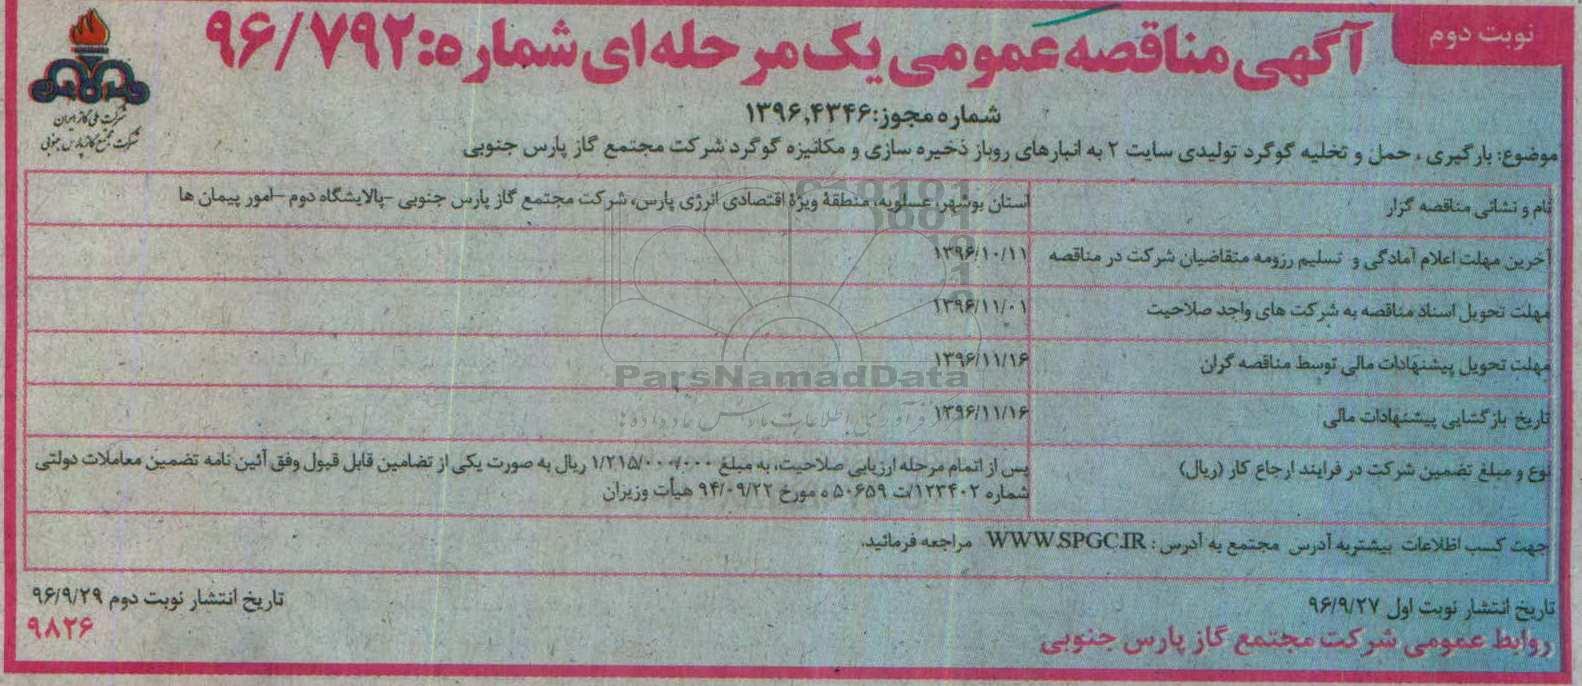 نوبت دوم
آگهی مناقصه عمومی یک مرحله‌ای شماره: ۹۶/۷۹۲
شماره مجوز: ۱۳۹۶,۴۳۴۶
شرکت ملی گاز ایران
شرکت مجتمع گاز پارس جنوبی
موضوع: بارگیری ، حمل و تخلیه گوگرد تولیدی سایت ۲ به انبارهای روباز ذخیره سازی و مکانیزه گوگرد شرکت مجتمع گاز پارس جنوبی
نام و نشانی مناقصه گزار
استان بوشهر، عسلویه، منطقهٔ ویژهٔ اقتصادی انرژی پارس، شرکت مجتمع گاز پارس جنوبی –پالایشگاه دوم –امور پیمان ها
آخرین مهلت اعلام آمادگی و تسلیم رزومه متقاضیان شرکت در مناقصه
۱۳۹۶/۱۰/۱۱
مهلت تحویل اسناد مناقصه به شرکت های واجد صلاحیت
۱۳۹۶/۱۱/۰۱
مهلت تحویل پیشنهادات مالی توسط مناقصه گران
۱۳۹۶/۱۱/۱۶
ParsNamadData
تاریخ بازگشایی پیشنهادات مالی
۱۳۹۶/۱۱/۱۶
نوع و مبلغ تضمین شرکت در فرایند ارجاع کار (ریال)
پس از اتمام مرحله ارزیابی صلاحیت، به مبلغ ۱/۲۱۵/۰۰۰/۰۰۰ ریال به صورت یکی از تضامین قابل قبول وفق آئین نامه تضمین معاملات دولتی
شماره ۱۲۳۴۰۲/ت ۵۰۶۵۹ ه مورخ ۹۴/۰۹/۲۲ هیأت وزیران
جهت کسب اطلاعات بیشتربه آدرس مجتمع به آدرس : WWW.SPGC.IR مراجعه فرمائید.
تاریخ انتشار نوبت اول ۹۶/۹/۲۷
تاریخ انتشار نوبت دوم ۹۶/۹/۲۹
روابط عمومی شرکت مجتمع گاز پارس جنوبی
۹۸۲۶